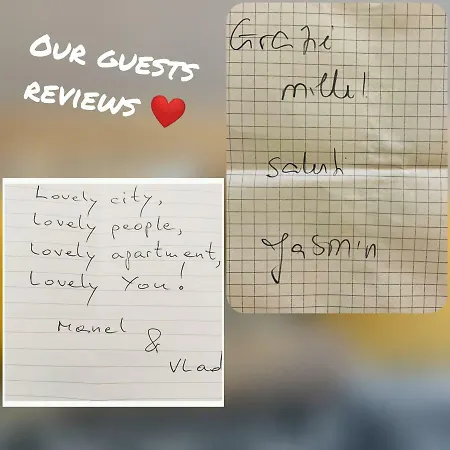 Our guests
reviews ❤️
Grazie
mille!
saluti
Yasmin
Lovely city,
Lovely people,
Lovely apartment,
Lovely You!
Manel
&
Vlad